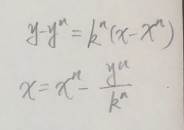 y-yⁿ = kⁿ(x-xⁿ)
x = xⁿ - yⁿ/kⁿ